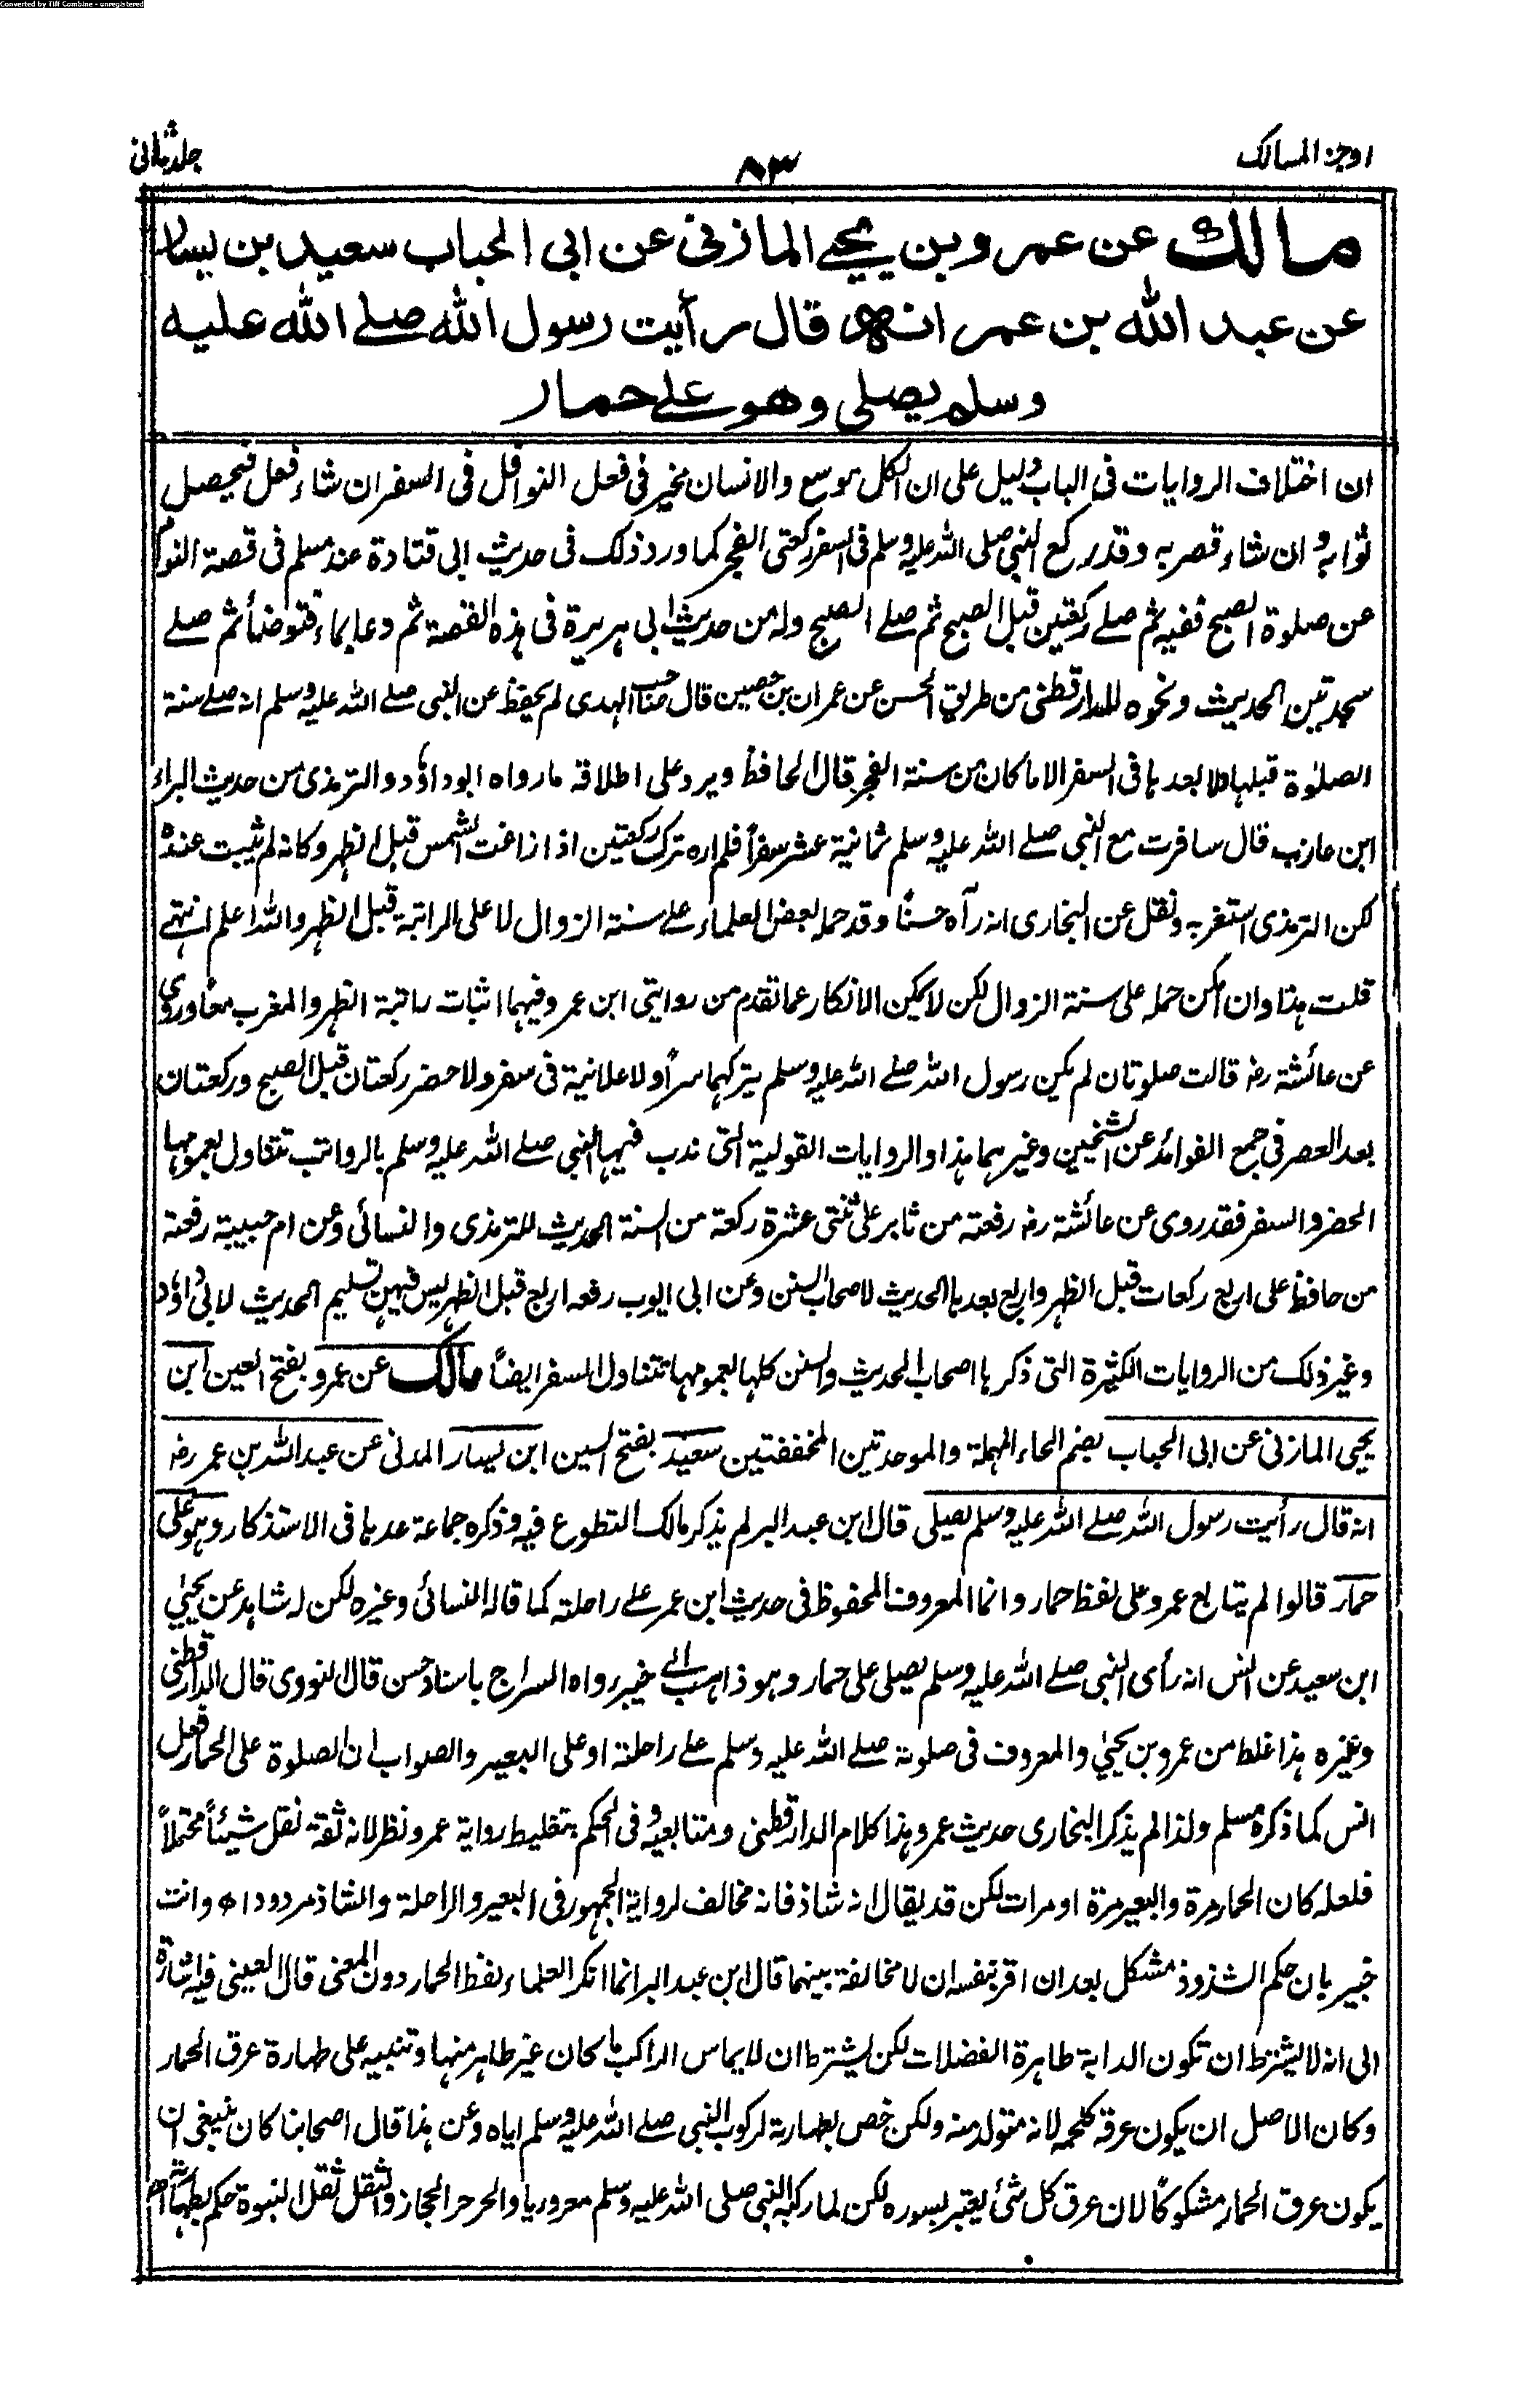 Converted by Tiff Combine - unregistered
اوجز المسالك
٨٣
جلد ثانى
مالك عن عمرو بن يحيے المازنى عن ابى الحباب سعيد بن يسار
عن عبد الله بن عمر انه قال رأيت رسول الله صلے الله عليه
وسلم يصلى وهو علے حمار
ان اختلاف الروايات فى الباب دليل على ان الكل موسع والانسان مخير فى فعل النوافل فى السفر ان شاء فعل فيحصل
ثوابه وان شاء قصر به وقد ركع النبى صلى الله عليه وسلم فى السفر ركعتى الفجر كما ورد ذلك فى حديث ابى قتادة عند مسلم فى قصة النوم
عن صلوة الصبح ففيه ثم صلے ركعتين قبل الصبح ثم صلے الصبح وله من حديث ابى هريرة فى هذه القصة ثم دعا بماء فتوضأ ثم صلے
سجدتين الحديث ونحوه للدارقطنى من طريق الحسن عن عمران بن حصين قال صاحب الهدى لم يحفظ عن النبى صلے الله عليه وسلم انه صلے سنة
الصلوٰة قبلها ولا بعدها فى السفر الا ما كان من سنة الفجر قال الحافظ ويرد على اطلاقه ما رواه ابوداؤد والترمذى من حديث البراء
ابن عازب قال سافرت مع النبى صلے الله عليه وسلم ثمانية عشر سفراً فلم اره ترك ركعتين اذا زاغت الشمس قبل الظهر وكانه لم يثبت عنده
لكن الترمذى استغربه ونقل عن البخارى انه رآه حسنًا وقد حمله بعض العلماء على سنة الزوال لا على الراتبة قبل الظهر والله اعلم انتهے
قلت هذا وان امكن حمله على سنة الزوال لكن لا يمكن الانكار عما تقدم من روايتى ابن عمر وفيهما اثبات راتبة الظهر والمغرب معاً وروى
عن عائشة رضہ قالت صلوتان لم يكن رسول الله صلے الله عليه وسلم يتركهما سراً ولا علانية فى سفر ولا حضر ركعتان قبل الصبح وركعتان
بعد العصر فى جمع الفوائد عن الشيخين وغيرهما هذا والروايات القولية التى ندب فيها النبى صلے الله عليه وسلم بالرواتب تتناول بعمومها
الحضر والسفر فقد روى عن عائشة رضہ رفعته من ثابر على ثنتى عشرة ركعة من السنة الحديث للترمذى والنسائى وعن ام حبيبة رفعته
من حافظ على اربع ركعات قبل الظهر واربع بعدها الحديث لاصحاب السنن وعن ابى ايوب رفعه اربع قبل الظهر ليس فيهن تسليم الحديث لابى داؤد
وغير ذلك من الروايات الكثيرة التى ذكرها اصحاب الحديث والسنن كلها بعمومها تتناول السفر ايضًا مالك عن عمرو بفتح العين ابن
يحيى المازنى عن ابى الحباب بضم الحاء المهملة والموحدتين المخففتين سعيد بفتح السين ابن يسار المدنى عن عبدالله بن عمر رضہ
انه قال رأيت رسول الله صلے الله عليه وسلم يصلى قال ابن عبد البر لم يذكر مالك التطوع فيه وذكره جماعة عدها فى الاستذكار وهو على
حمار قالوا لم يتابع عمرو على لفظ حمار وانما المعروف المحفوظ فى حديث ابن عمر علے راحلته كما قاله النسائى وغيره لكن له شاهد عن يحيىٰ
ابن سعيد عن انس انه رأى النبى صلے الله عليه وسلم يصلى على حمار وهو ذاهب الے خيبر رواه السراج باسناد حسن قال النووى قال الدارقطنى
وغيره هذا غلط من عمرو بن يحيىٰ والمعروف فى صلوته صلے الله عليه وسلم علے راحلته او على البعير والصواب ان الصلوة على الحمار فعل
انس كما ذكره مسلم ولذا لم يذكر البخارى حديث عمرو هذا كلام الدارقطنى ومتابعيه وفى الحكم بتغليط رواية عمرو نظر لانه ثقة نقل شيئاً محتملاً
فلعله كان الحمار مرة والبعير مرة او مرات لكن قد يقال انه شاذ فانه مخالف لرواية الجمهور فى البعير والراحلة والشاذ مردود اه وانت
خبير بان حكم الشذوذ مشكل بعد ان اقر بنفسه ان لا مخالفة بينهما قال ابن عبد البر انما انكر العلماء لفظ الحمار دون المعنى قال العينى فيه اشارة
الى انه لا يشترط ان تكون الدابة طاهرة الفضلات لكن يشترط ان لا يماس الراكب ما كان غير طاهر منها وتنبيه على طهارة عرق الحمار
وكان الاصل ان يكون عرقه كلحمه لانه متولد منه ولكن خص بطهارته لركوب النبى صلے الله عليه وسلم اياه وعن هذا قال اصحابنا كان ينبغى ان
يكون عرق الحمار مشكوكًا لان عرق كل شئ يعتبر بسوره لكن لما ركبه النبى صلى الله عليه وسلم معروريا والحر حر الحجاز والثقل ثقل النبوة حكم بطهارته اه